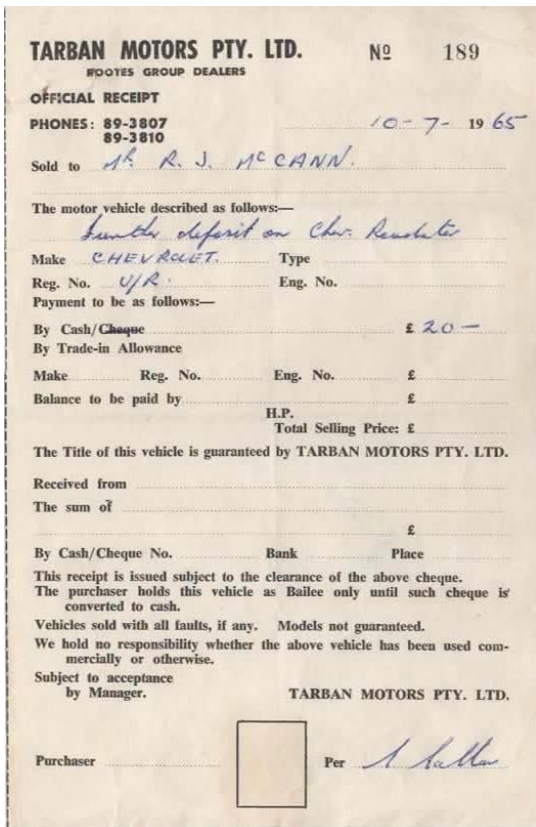 TARBAN MOTORS PTY. LTD. Nº 189
ROOTES GROUP DEALERS
OFFICIAL RECEIPT
PHONES: 89-3807
89-3810
10-7-1965
Sold to Mr R. J. McCANN.
The motor vehicle described as follows:—
Further deposit on Chev. Roadster
Make CHEVROLET. Type
Reg. No. U/R. Eng. No.
Payment to be as follows:—
By Cash/Cheque £ 20-
By Trade-in Allowance
Make Reg. No. Eng. No. £
Balance to be paid by £
H.P.
Total Selling Price: £
The Title of this vehicle is guaranteed by TARBAN MOTORS PTY. LTD.
Received from
The sum of
£
By Cash/Cheque No. Bank Place
This receipt is issued subject to the clearance of the above cheque.
The purchaser holds this vehicle as Bailee only until such cheque is
converted to cash.
Vehicles sold with all faults, if any. Models not guaranteed.
We hold no responsibility whether the above vehicle has been used com-
mercially or otherwise.
Subject to acceptance
by Manager. TARBAN MOTORS PTY. LTD.
Purchaser Per